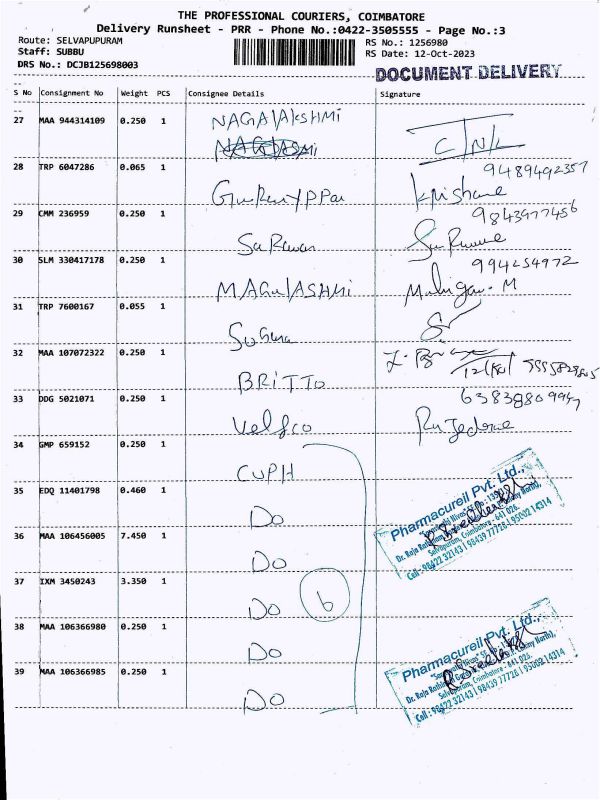 THE PROFESSIONAL COURIERS, COIMBATORE
Delivery Runsheet - PRR - Phone No.:0422-3505555 - Page No.:3
Route: SELVAPUPURAM RS No.: 1256980
Staff: SUBBU RS Date: 12-Oct-2023
DRS No.: DCJB125698003
DOCUMENT DELIVERY
S No Consignment No Weight PCS Consignee Details Signature
27 MAA 944314109 0.250 1 NAGALAKSHMI
28 TRP 6047286 0.065 1
9489492357
29 CMM 236959 0.250 1 Saravan
9843977456
30 SLM 330417178 0.250 1 MAGALASHMI
994254972
Murugan. M
31 TRP 7600167 0.055 1 Suguna
32 MAA 107072322 0.250 1 BRITTO
33 DDG 5021071 0.250 1 Velfco
34 GMP 659152 0.250 1 CUPH
35 EDQ 11401798 0.460 1 Do
36 MAA 106456005 7.450 1 Do
37 IXM 3450243 3.350 1 Do 6
38 MAA 106366980 0.250 1 Do
39 MAA 106366985 0.250 1 Do
Pharmacureil Pvt. Ltd.,
Selvapuram, Coimbatore - 641 026.
Cell : 98422 32143 | 98439 77728 | 95002 14314
Pharmacureil Pvt. Ltd.,
Selvapuram, Coimbatore - 641 026.
Cell : 98422 32143 | 98439 77728 | 95002 14314